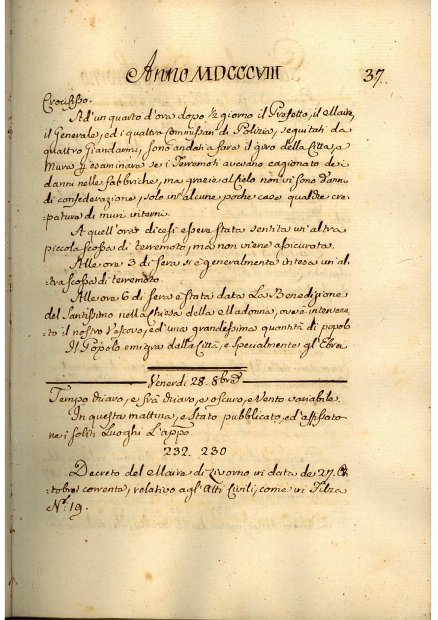 Anno MDCCCVIII 37
Crocifisso.
Ad'un quarto d'ora dopo ½ giorno il Prefetto, il Maire,
il Generale, ed i quattro Commissari di Polizia, seguitati da
quattro Giandarmi, sono andati a fare il giro della Città, a
Mura p esaminare se i Terremoti avevano cagionato dei
danni nelle fabbriche, ma grazie al Cielo non vi sono danni
di considerazione, solo in alcune poche case qualche cre-
patura di muri interni.
A quell'ora dicesi essere stata sentita un'altra
piccola scossa di terremoto, ma non viene assicurata.
Alle ore 3 di sera si è generalmente intesa un'al-
tra scossa di terremoto.
Alle ore 6 di sera è stata data La Benedizione
del Santissimo nella Chiesa della Madonna, ove è interven-
to il nostro Vescovo, ed una grandissima quantità di popolo
Il Popolo emigra dalla Città, e specialmente gl'Ebrei
Venerdì 28. 8bre
Tempo chiaro, e frà chiaro, e oscuro, e Vento variabile.
In questa mattina, è stato pubblicato, ed affissato
ne i soliti Luoghi L'appo
232. 230
Decreto del Maire di Livorno in data de 27. Ot-
tobre corrente, relativo agl'Atti Civili, come in Filza
N.º 19.